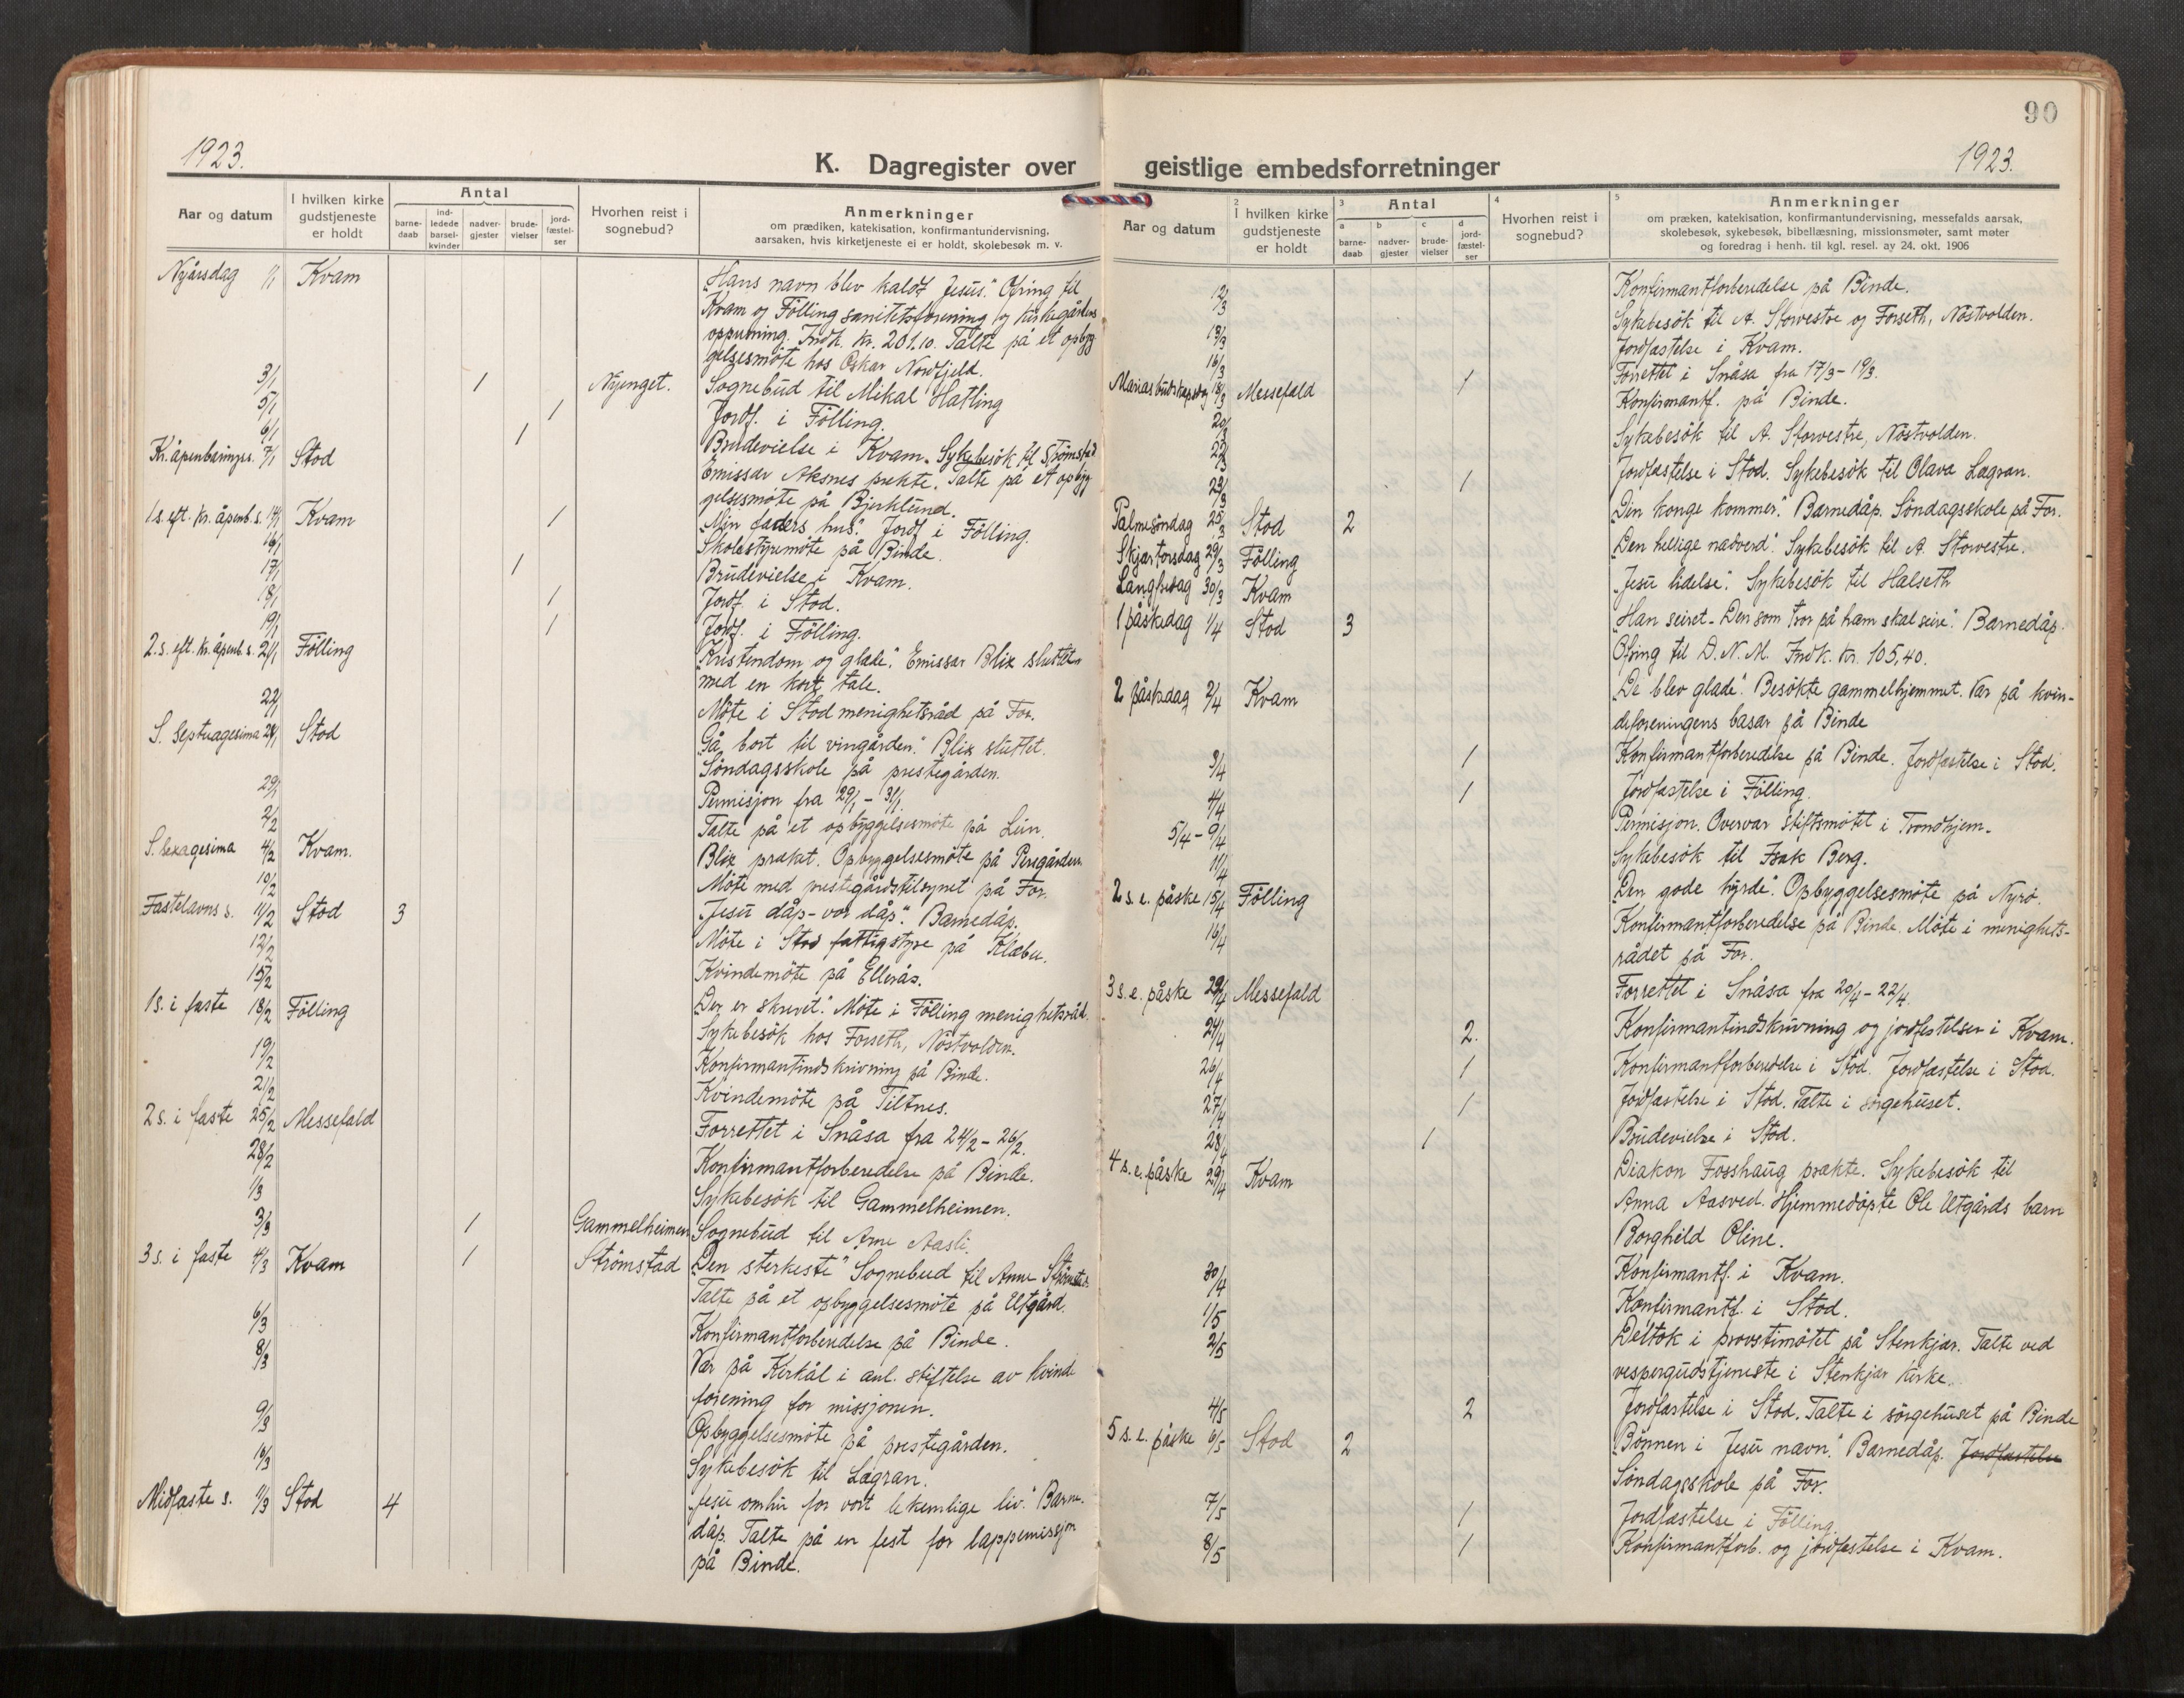 1923.
K. Dagregister over
Aar og datum
I hvilken kirke gudstjeneste er holdt
Antal
barnedaab
indledede barselkvinder
nadvergjester
brudevielser
jordfæstelser
Hvorhen reist i sognebud?
Anmerkninger
om prædiken, katekisation, konfirmantundervisning,
aarsaken, hvis kirketjeneste ei er holdt, skolebesøk m. v.
Nyårsdag 1/1 Kvam „Hans navn blev kaldt Jesus." Ofring til
Kvam og Fölling sanitetsforening og kirkegårdens
oppudsning. Indk. kr. 201.10. Talte på et opbyg
gelsesmöte hos Oskar Nordfjeld.
3/1 1 Nyenget. Sognebud til Mikal Hatling
5/1 1 Jordf. i Fölling.
6/1 1 Brudevielse i Kvam. Sykebesök til Strömstad
Kr. åpenbaringss. 7/1 Stod Emissær Aksnes prekte. Talte på et opbyg
gelsesmöte på Bjerklund.
1 s. eft. kr. åpenb. s. 14/1 Kvam 1 „Min faders hus". Jordf i Fölling.
16/1 Skolestyremöte på Binde.
17/1 1 Brudevielse i Kvam.
18/1 1 Jordf. i Stod.
19/1 1 Jordf. i Fölling.
2. s. eft. kr. åpenb. s. 21/1 Fölling „Kristendom og glæde". Emissær Blix sluttet
med en kort tale.
22/1 Möte i Stod menighetsråd på For.
S. Septuagesima 28/1 Stod „Gå bort til vingården". Blix sluttet.
Söndagsskole på prestegården.
29/1 Permisjon fra 29/1 - 31/1.
2/2 Talte på et opbyggelsesmöte på Lein.
S. Sexagesima 4/2 Kvam. Blix præket. Opbyggelsesmöte på Peregården
10/2 Möte med prestegårdstilsynet på For.
Fastelavns s. 11/2 Stod 3 „Jesu dåp - vor dåp". Barnedåp.
12/2 Möte i Stod fattigstyre på Klæbu.
15/2 Kvindemöte på Ellerås.
1 s. i faste 18/2 Fölling „Der er skrevet". Möte i Fölling menighetsråd.
Sykebesök hos Forseth, Nöstvolden.
19/2 Konfirmantindskrivning på Binde.
21/2 Kvindemöte på Tiltnes.
2 s. i faste 25/2 Messefald Forrettet i Snåsa fra 24/2 - 26/2.
28/2 Konfirmantforberedelse på Binde.
1/3 Sykebesök til Gammelheimen.
3/3 1 Gammelheimen Sognebud til Arne Aasli.
3 s. i faste 4/3 Kvam 1 Strömstad „Den sterkeste" Sognebud til Anne Strömstad.
Talte på et opbyggelsesmöte på Utgård.
6/3 Konfirmantforberedelse på Binde.
8/3 Var på Kirkål i anl. stiftelse av kvinde
forening for missjonen.
9/3 Opbyggelsesmöte på prestegården.
10/3 Sykebesök til Lægran.
Midfaste s. 11/3 Stod 4 „Jesu omhu for vort lekemlige liv." Barne-
dåp. Talte på en fest for lappemissjon
på Binde.
90
geistlige embedsforretninger
1923.
Aar og datum
2
I hvilken kirke gudstjeneste er holdt
3
Antal
a barnedaab
b nadvergjester
c brudevielser
d jordfæstelser
4
Hvorhen reist i sognebud?
5
Anmerkninger
om præken, katekisation, konfirmantundervisning, messefalds aarsak,
skolebesøk, sykebesøk, bibellæsning, missionsmøter, samt møter
og foredrag i henh. til kgl. resel. av 24. okt. 1906
12/3 Konfirmantforberedelse på Binde.
13/3 Sykebesök til A. Storvestre og Forseth, Nöstvolden.
16/3 1 Jordfæstelse i Kvam.
Mariæ budskapsdag 18/3 Messefald Forrettet i Snåsa fra 17/3 - 19/3.
20/3 Konfirmantf. på Binde.
Sykebesök til A. Storvestre, Nöstvolden.
23/3 1 Jordfæstelse i Stod. Sykebesök til Olava Lægran.
Palmesöndag 25/3 Stod 2 „Din konge kommer". Barnedåp. Söndagsskole på For.
Skjærtorsdag 29/3 Fölling „Den hellige nadverd". Sykebesök til A. Storvestre.
Langfredag 30/3 Kvam „Jesu lidelse". Sykebesök til Halseth
1 påskedag 1/4 Stod 3 „Han seiret - Den som tror på ham skal seire". Barnedåp.
Ofring til D. N. M. Indk. kr. 105,40.
2 påskedag 2/4 Kvam „De blev glade". Besökte gammelhjemmet. Var på kvin-
deforeningens basar på Binde
3/4 1 Konfirmantforberedelse på Binde. Jordfæstelse i Stod.
4/4 1 Jordfæstelse i Fölling.
5/4 - 9/4 Permisjon. Overvar stiftsmötet i Trondhjem.
11/4 Sykebesök til Isak Berg.
2 s. e. påske 15/4 Fölling „Den gode hyrde". Opbyggelsesmöte på Nyrö.
16/4 Konfirmantforberedelse på Binde. Möte i menighets-
rådet på For.
3 s. e. påske 22/4 Messefald Forrettet i Snåsa fra 20/4 - 22/4.
24/4 2. Konfirmantindskrivning og jordfestelser i Kvam.
26/4 1 Konfirmantforberedelse i Stod. Jordfæstelse i Stod.
27/4 1 Jordfæstelse i Stod. Talte i sörgehuset.
28/4 1 Brudevielse i Stod.
4 s. e. påske 29/4 Kvam Diakon Fosshaug prækte. Sykebesök til
Anna Aasved. Hjemmedöpte Ole Utgårds barn
Borghild Oline.
30/4 Konfirmantf. i Kvam.
1/5 Konfirmantf. i Stod.
2/5 Deltok i provstimötet på Stenkjær. Talte ved
vespergudstjeneste i Stenkjær kirke.
4/5 2 Jordfæstelse i Stod. Talte i sörgehuset på Binde
5 s. e. påske 6/5 Stod 2 „Bönnen i Jesu navn." Barnedåp. Jordfæstelse
Söndagsskole på For.
7/5 1 Jordfæstelse i Fölling.
8/5 1 Konfirmantforb. og jordfæstelse i Kvam.